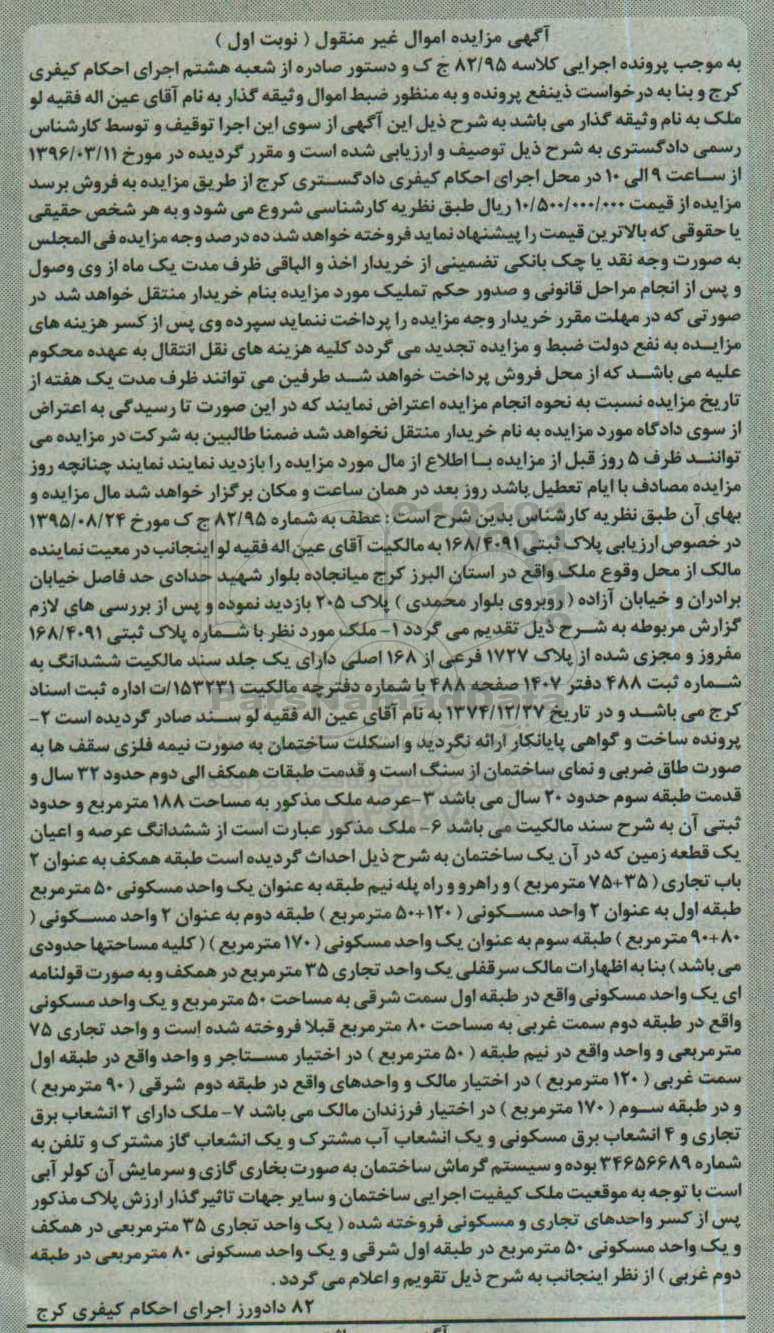 آگهی مزایده اموال غیر منقول ( نوبت اول )
به موجب پرونده اجرایی کلاسه ۸۲/۹۵ ج ک و دستور صادره از شعبه هشتم اجرای احکام کیفری
کرج و بنا به درخواست ذینفع پرونده و به منظور ضبط اموال وثیقه گذار به نام آقای عین اله فقیه لو
ملک به نام وثیقه گذار می باشد به شرح ذیل این آگهی از سوی این اجرا توقیف و توسط کارشناس
رسمی دادگستری به شرح ذیل توصیف و ارزیابی شده است و مقرر گردیده در مورخ ۱۳۹۶/۰۳/۱۱
از ساعت ۹ الی ۱۰ در محل اجرای احکام کیفری دادگستری کرج از طریق مزایده به فروش برسد
مزایده از قیمت ۱۰/۵۰۰/۰۰۰/۰۰۰ ریال طبق نظریه کارشناسی شروع می شود و به هر شخص حقیقی
یا حقوقی که بالاترین قیمت را پیشنهاد نماید فروخته خواهد شد ده درصد وجه مزایده فی المجلس
به صورت وجه نقد یا چک بانکی تضمینی از خریدار اخذ و الباقی ظرف مدت یک ماه از وی وصول
و پس از انجام مراحل قانونی و صدور حکم تملیک مورد مزایده بنام خریدار منتقل خواهد شد در
صورتی که در مهلت مقرر خریدار وجه مزایده را پرداخت ننماید سپرده وی پس از کسر هزینه های
مزایده به نفع دولت ضبط و مزایده تجدید می گردد کلیه هزینه های نقل انتقال به عهده محکوم
علیه می باشد که از محل فروش پرداخت خواهد شد طرفین می توانند ظرف مدت یک هفته از
تاریخ مزایده نسبت به نحوه انجام مزایده اعتراض نمایند که در این صورت تا رسیدگی به اعتراض
از سوی دادگاه مورد مزایده به نام خریدار منتقل نخواهد شد ضمنا طالبین به شرکت در مزایده می
توانند ظرف ۵ روز قبل از مزایده با اطلاع از مال مورد مزایده را بازدید نمایند نمایند چنانچه روز
مزایده مصادف با ایام تعطیل باشد روز بعد در همان ساعت و مکان برگزار خواهد شد مال مزایده و
بهای آن طبق نظریه کارشناس بدین شرح است : عطف به شماره ۸۲/۹۵ ج ک مورخ ۱۳۹۵/۰۸/۲۴
در خصوص ارزیابی پلاک ثبتی ۱۶۸/۴۰۹۱ به مالکیت آقای عین اله فقیه لو اینجانب در معیت نماینده
مالک از محل وقوع ملک واقع در استان البرز کرج میانجاده بلوار شهید حدادی حد فاصل خیابان
برادران و خیابان آزاده ( روبروی بلوار محمدی ) پلاک ۲۰۵ بازدید نموده و پس از بررسی های لازم
گزارش مربوطه به شرح ذیل تقدیم می گردد ۱- ملک مورد نظر با شماره پلاک ثبتی ۱۶۸/۴۰۹۱
مفروز و مجزی شده از پلاک ۱۷۲۷ فرعی از ۱۶۸ اصلی دارای یک جلد سند مالکیت ششدانگ به
شماره ثبت ۴۸۸ دفتر ۱۴۰۷ صفحه ۴۸۸ با شماره دفترچه مالکیت ۱۵۳۲۳۱/ت اداره ثبت اسناد
کرج می باشد و در تاریخ ۱۳۷۴/۱۲/۲۷ به نام آقای عین اله فقیه لو سند صادر گردیده است ۲-
پرونده ساخت و گواهی پایانکار ارائه نگردید و اسکلت ساختمان به صورت نیمه فلزی سقف ها به
صورت طاق ضربی و نمای ساختمان از سنگ است و قدمت طبقات همکف الی دوم حدود ۳۲ سال و
قدمت طبقه سوم حدود ۲۰ سال می باشد ۳-عرصه ملک مذکور به مساحت ۱۸۸ مترمربع و حدود
ثبتی آن به شرح سند مالکیت می باشد ۶- ملک مذکور عبارت است از ششدانگ عرصه و اعیان
یک قطعه زمین که در آن یک ساختمان به شرح ذیل احداث گردیده است طبقه همکف به عنوان ۲
باب تجاری ( ۳۵+۷۵ مترمربع ) و راهرو و راه پله نیم طبقه به عنوان یک واحد مسکونی ۵۰ مترمربع
طبقه اول به عنوان ۲ واحد مسکونی ( ۱۲۰+۵۰ مترمربع ) طبقه دوم به عنوان ۲ واحد مسکونی (
۸۰+۹۰ مترمربع ) طبقه سوم به عنوان یک واحد مسکونی ( ۱۷۰ مترمربع ) ( کلیه مساحتها حدودی
می باشد ) بنا به اظهارات مالک سرقفلی یک واحد تجاری ۳۵ مترمربع در همکف و به صورت قولنامه
ای یک واحد مسکونی واقع در طبقه اول سمت شرقی به مساحت ۵۰ مترمربع و یک واحد مسکونی
واقع در طبقه دوم سمت غربی به مساحت ۸۰ مترمربع قبلا فروخته شده است و واحد تجاری ۷۵
مترمربعی و واحد واقع در نیم طبقه ( ۵۰ مترمربع ) در اختیار مستاجر و واحد واقع در طبقه اول
سمت غربی ( ۱۲۰ مترمربع ) در اختیار مالک و واحدهای واقع در طبقه دوم شرقی ( ۹۰ مترمربع )
و در طبقه سوم ( ۱۷۰ مترمربع ) در اختیار فرزندان مالک می باشد ۷- ملک دارای ۲ انشعاب برق
تجاری و ۴ انشعاب برق مسکونی و یک انشعاب آب مشترک و یک انشعاب گاز مشترک و تلفن به
شماره ۳۴۶۵۶۶۸۹ بوده و سیستم گرمایش ساختمان به صورت بخاری گازی و سرمایش آن کولر آبی
است با توجه به موقعیت ملک کیفیت اجرایی ساختمان و سایر جهات تاثیرگذار ارزش پلاک مذکور
پس از کسر واحدهای تجاری و مسکونی فروخته شده ( یک واحد تجاری ۳۵ مترمربعی در همکف
و یک واحد مسکونی ۵۰ مترمربع در طبقه اول شرقی و یک واحد مسکونی ۸۰ مترمربعی در طبقه
دوم غربی ) از نظر اینجانب به شرح ذیل تقویم و اعلام می گردد .
۸۲ دادورز اجرای احکام کیفری کرج